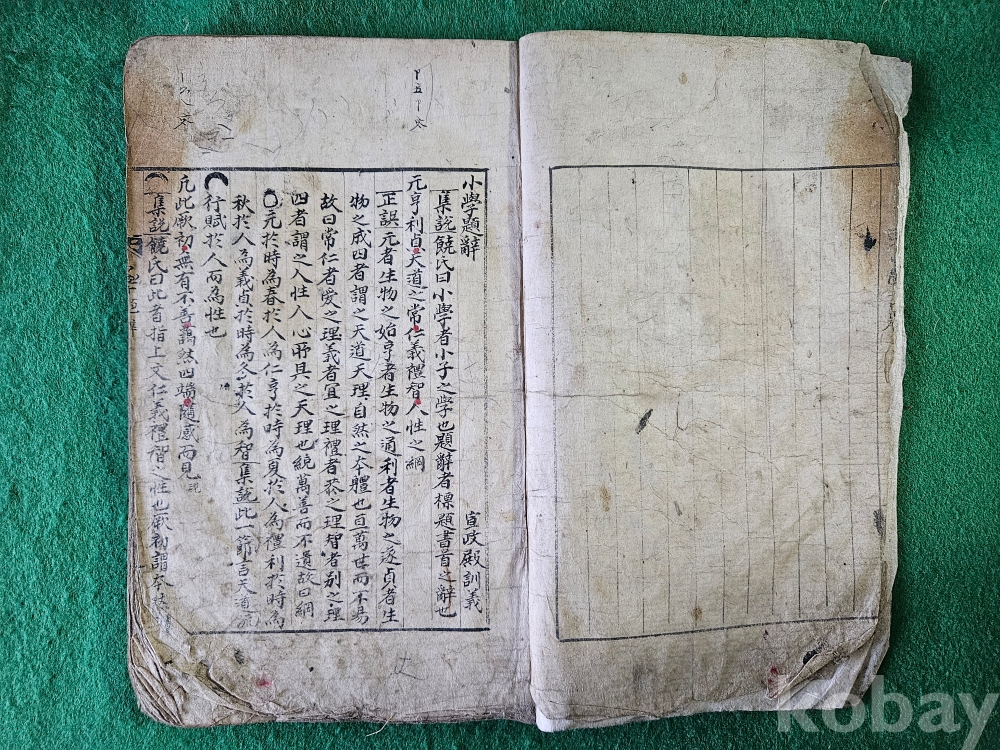 小學題辭
宣政殿訓義
集說饒氏曰小學者小子之學也題辭者標題書首之辭也
元亨利貞天道之常仁義禮智人性之綱
正誤元者生物之始亨者生物之通利者生物之遂貞者生
物之成四者謂之天道天理自然之本體也亘萬世而不易
故曰常仁者愛之理義者宜之理禮者恭之理智者別之理
四者謂之人性人心所具之天理也統萬善而不遺故曰綱
元於時為春於人為仁亨於時為夏於人為禮利於時為
秋於人為義貞於時為冬於人為智集說此一節言天道流
行賦於人而為性也
凡此厥初無有不善藹然四端隨感而見現
集說饒氏曰此者指上文仁義禮智之性也厥初謂本
kobay